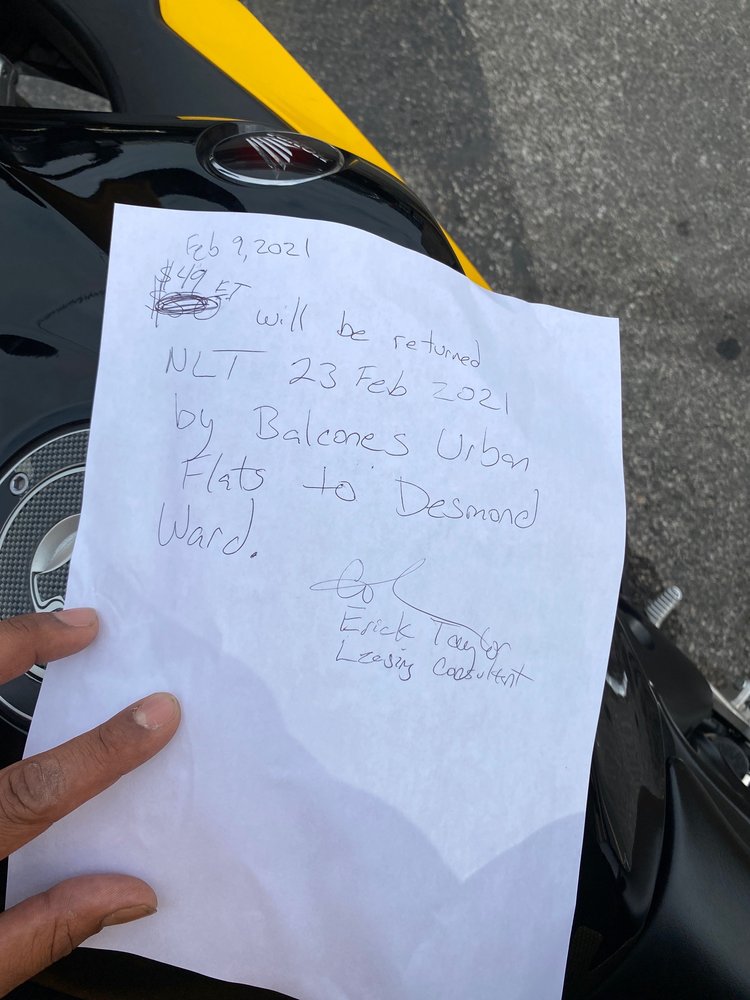 Feb 9, 2021
$49 ET
will be returned
NLT 23 Feb 2021
by Balcones Urban
Flats to Desmond
Ward.
Erick Taylor
Leasing Consultant